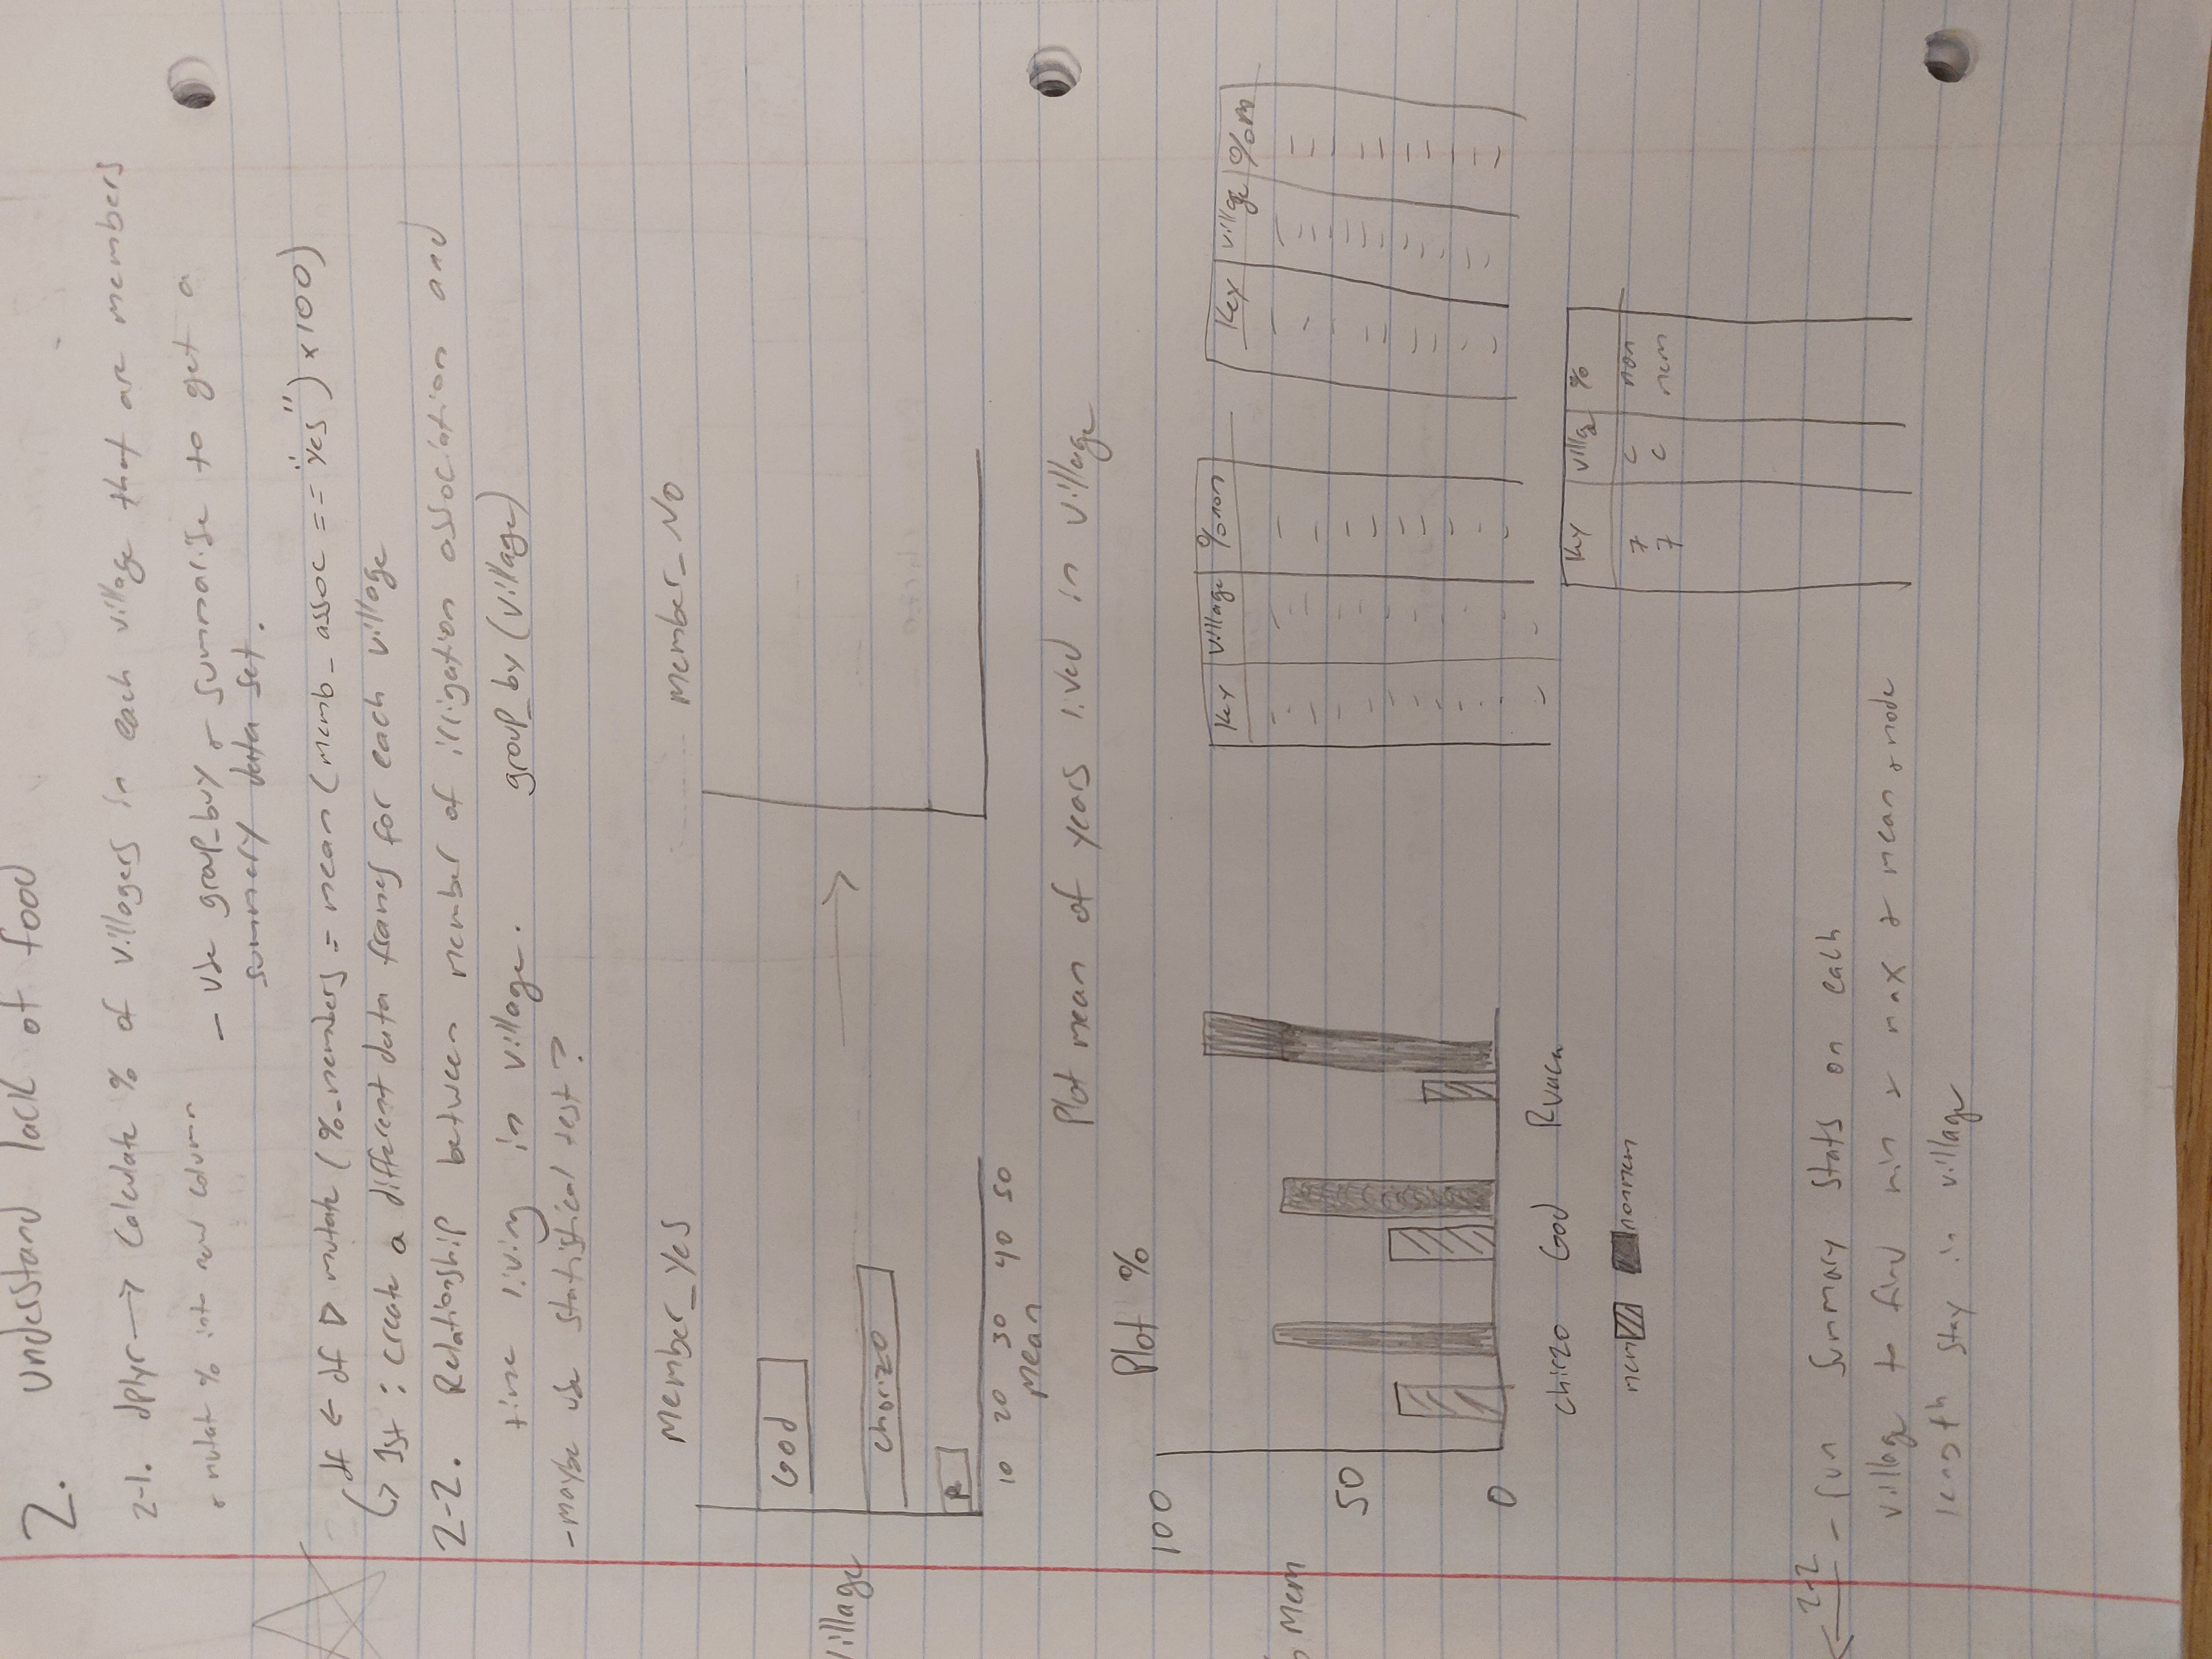 2. Understand lack of food
2-1. dplyr → Calculate % of villagers in each village that are members
& mutat % into new column
- use group_buy & summarise to get a
summery data set.
df ← df ▷ mutate (%_members = mean (memb_assoc == "yes") × 100)
↳ 1st : create a different data frames for each village
2-2. Relationship between member of irrigation association and
time living in village. group_by (village)
- maybe use statistical test?
Member_Yes
member_No
God
Village
chorizo
R
10 20 30 40 50
Mean
Plot mean of years lived in village
Plot %
100
50
0
Mem
chirzo God Ruaca
mem nonmem
Key Village %non
Key village %m
Key villag %
7 c non
7 c mem
2-2
- run summary stats on each
village to find min & max & mean & mode
length stay in village